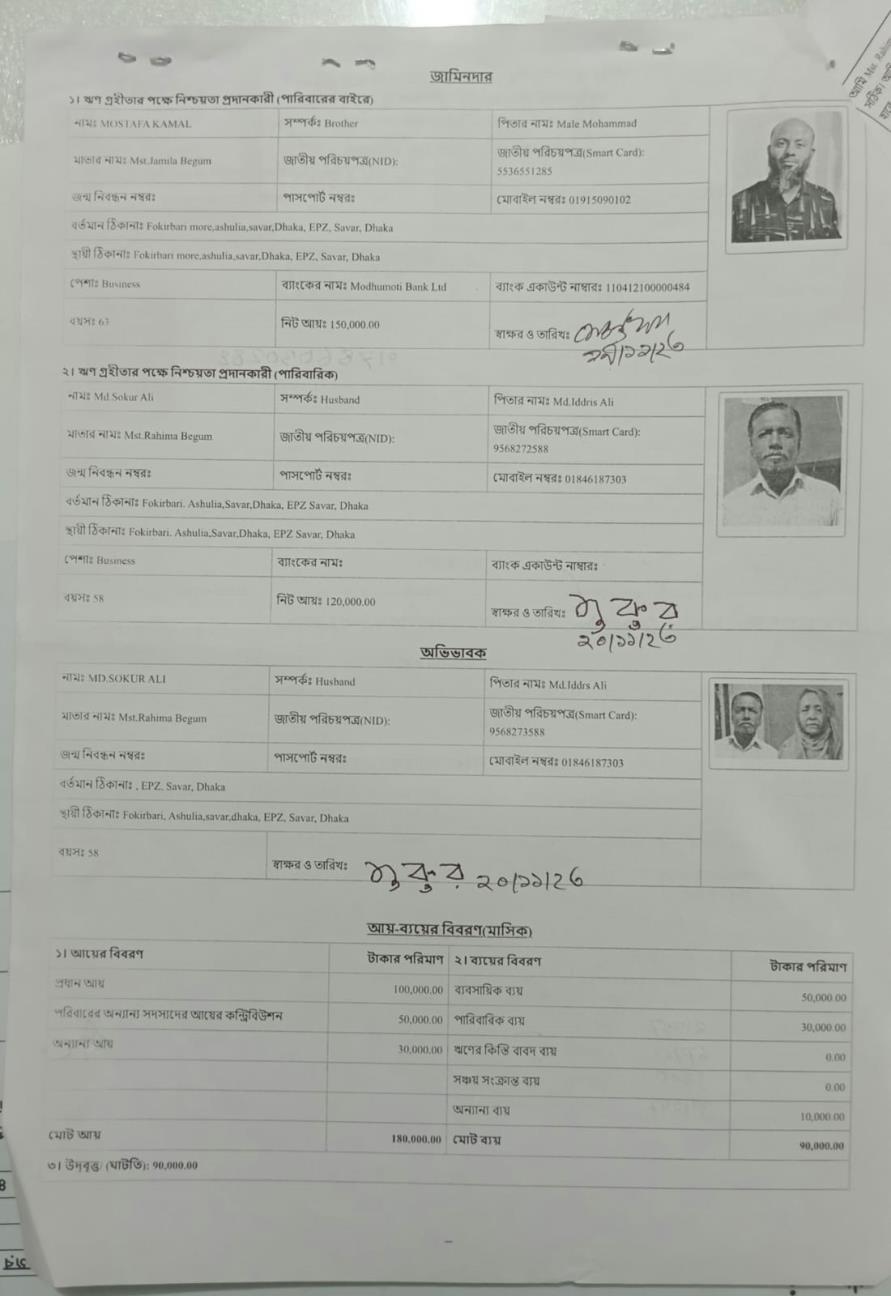 জামিনদার
১। ঋণ গ্রহীতার পক্ষে নিশ্চয়তা প্রদানকারী (পরিবারের বাইরে)
নামঃ MOSTAFA KAMAL সম্পর্কঃ Brother পিতার নামঃ Male Mohammad
মাতার নামঃ Mst.Jamila Begum জাতীয় পরিচয়পত্র(NID): জাতীয় পরিচয়পত্র(Smart Card):
5536551285
জন্ম নিবন্ধন নম্বরঃ পাসপোর্ট নম্বরঃ মোবাইল নম্বরঃ 01915090102
বর্তমান ঠিকানাঃ Fokirbari more,ashulia,savar,Dhaka, EPZ, Savar, Dhaka
স্থায়ী ঠিকানাঃ Fokirbari more,ashulia,savar,Dhaka, EPZ, Savar, Dhaka
পেশাঃ Business ব্যাংকের নামঃ Modhumoti Bank Ltd ব্যাংক একাউন্ট নাম্বারঃ 110412100000484
বয়সঃ 63 নিট আয়ঃ 150,000.00 স্বাক্ষর ও তারিখঃ
২। ঋণ গ্রহীতার পক্ষে নিশ্চয়তা প্রদানকারী (পারিবারিক)
নামঃ Md.Sokur Ali সম্পর্কঃ Husband পিতার নামঃ Md.Iddris Ali
মাতার নামঃ Mst.Rahima Begum জাতীয় পরিচয়পত্র(NID): জাতীয় পরিচয়পত্র(Smart Card):
9568272588
জন্ম নিবন্ধন নম্বরঃ পাসপোর্ট নম্বরঃ মোবাইল নম্বরঃ 01846187303
বর্তমান ঠিকানাঃ Fokirbari. Ashulia,Savar,Dhaka, EPZ Savar, Dhaka
স্থায়ী ঠিকানাঃ Fokirbari. Ashulia,Savar,Dhaka, EPZ Savar, Dhaka
পেশাঃ Business ব্যাংকের নামঃ ব্যাংক একাউন্ট নাম্বারঃ
বয়সঃ 58 নিট আয়ঃ 120,000.00 স্বাক্ষর ও তারিখঃ শুকুর
২০/১১/২৫
অভিভাবক
নামঃ MD.SOKUR ALI সম্পর্কঃ Husband পিতার নামঃ Md.Iddrs Ali
মাতার নামঃ Mst.Rahima Begum জাতীয় পরিচয়পত্র(NID): জাতীয় পরিচয়পত্র(Smart Card):
9568273588
জন্ম নিবন্ধন নম্বরঃ পাসপোর্ট নম্বরঃ মোবাইল নম্বরঃ 01846187303
বর্তমান ঠিকানাঃ , EPZ, Savar, Dhaka
স্থায়ী ঠিকানাঃ Fokirbari, Ashulia,savar,dhaka, EPZ, Savar, Dhaka
বয়সঃ 58 স্বাক্ষর ও তারিখঃ শুকুর ২০/১১/২৫
আয়-ব্যয়ের বিবরণ(মাসিক)
১। আয়ের বিবরণ টাকার পরিমাণ ২। ব্যয়ের বিবরণ টাকার পরিমাণ
প্রধান আয় 100,000.00 ব্যবসায়িক ব্যয় 50,000.00
পরিবারের অন্যান্য সদস্যদের আয়ের কন্ট্রিবিউশন 50,000.00 পারিবারিক ব্যয় 30,000.00
অন্যান্য আয় 30,000.00 ঋণের কিস্তি বাবদ ব্যয় 0.00
সঞ্চয় সংক্রান্ত ব্যয় 0.00
অন্যান্য ব্যয় 10,000.00
মোট আয় 180,000.00 মোট ব্যয় 90,000.00
৩। উদবৃত্ত/ (ঘাটতি): 90,000.00